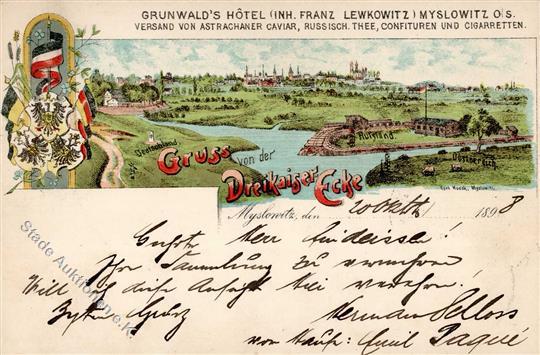 GRUNWALD'S HÔTEL (INH. FRANZ LEWKOWITZ) MYSLOWITZ O/S.
VERSAND VON ASTRACHANER CAVIAR, RUSSISCH. THEE, CONFITUREN UND CIGARRETTEN.
Russland
Oesterreich
Gruss von der
Dreikaiser Ecke
Myslowitz, den 20 Oktb 1898
Geehrter Herr
Ihre Sammlung zu vermehren
Will ich diese Ansicht Frei verehren.
Besten Gruß
Herman
von Emil Paqué
Stade Auktionen e.K.